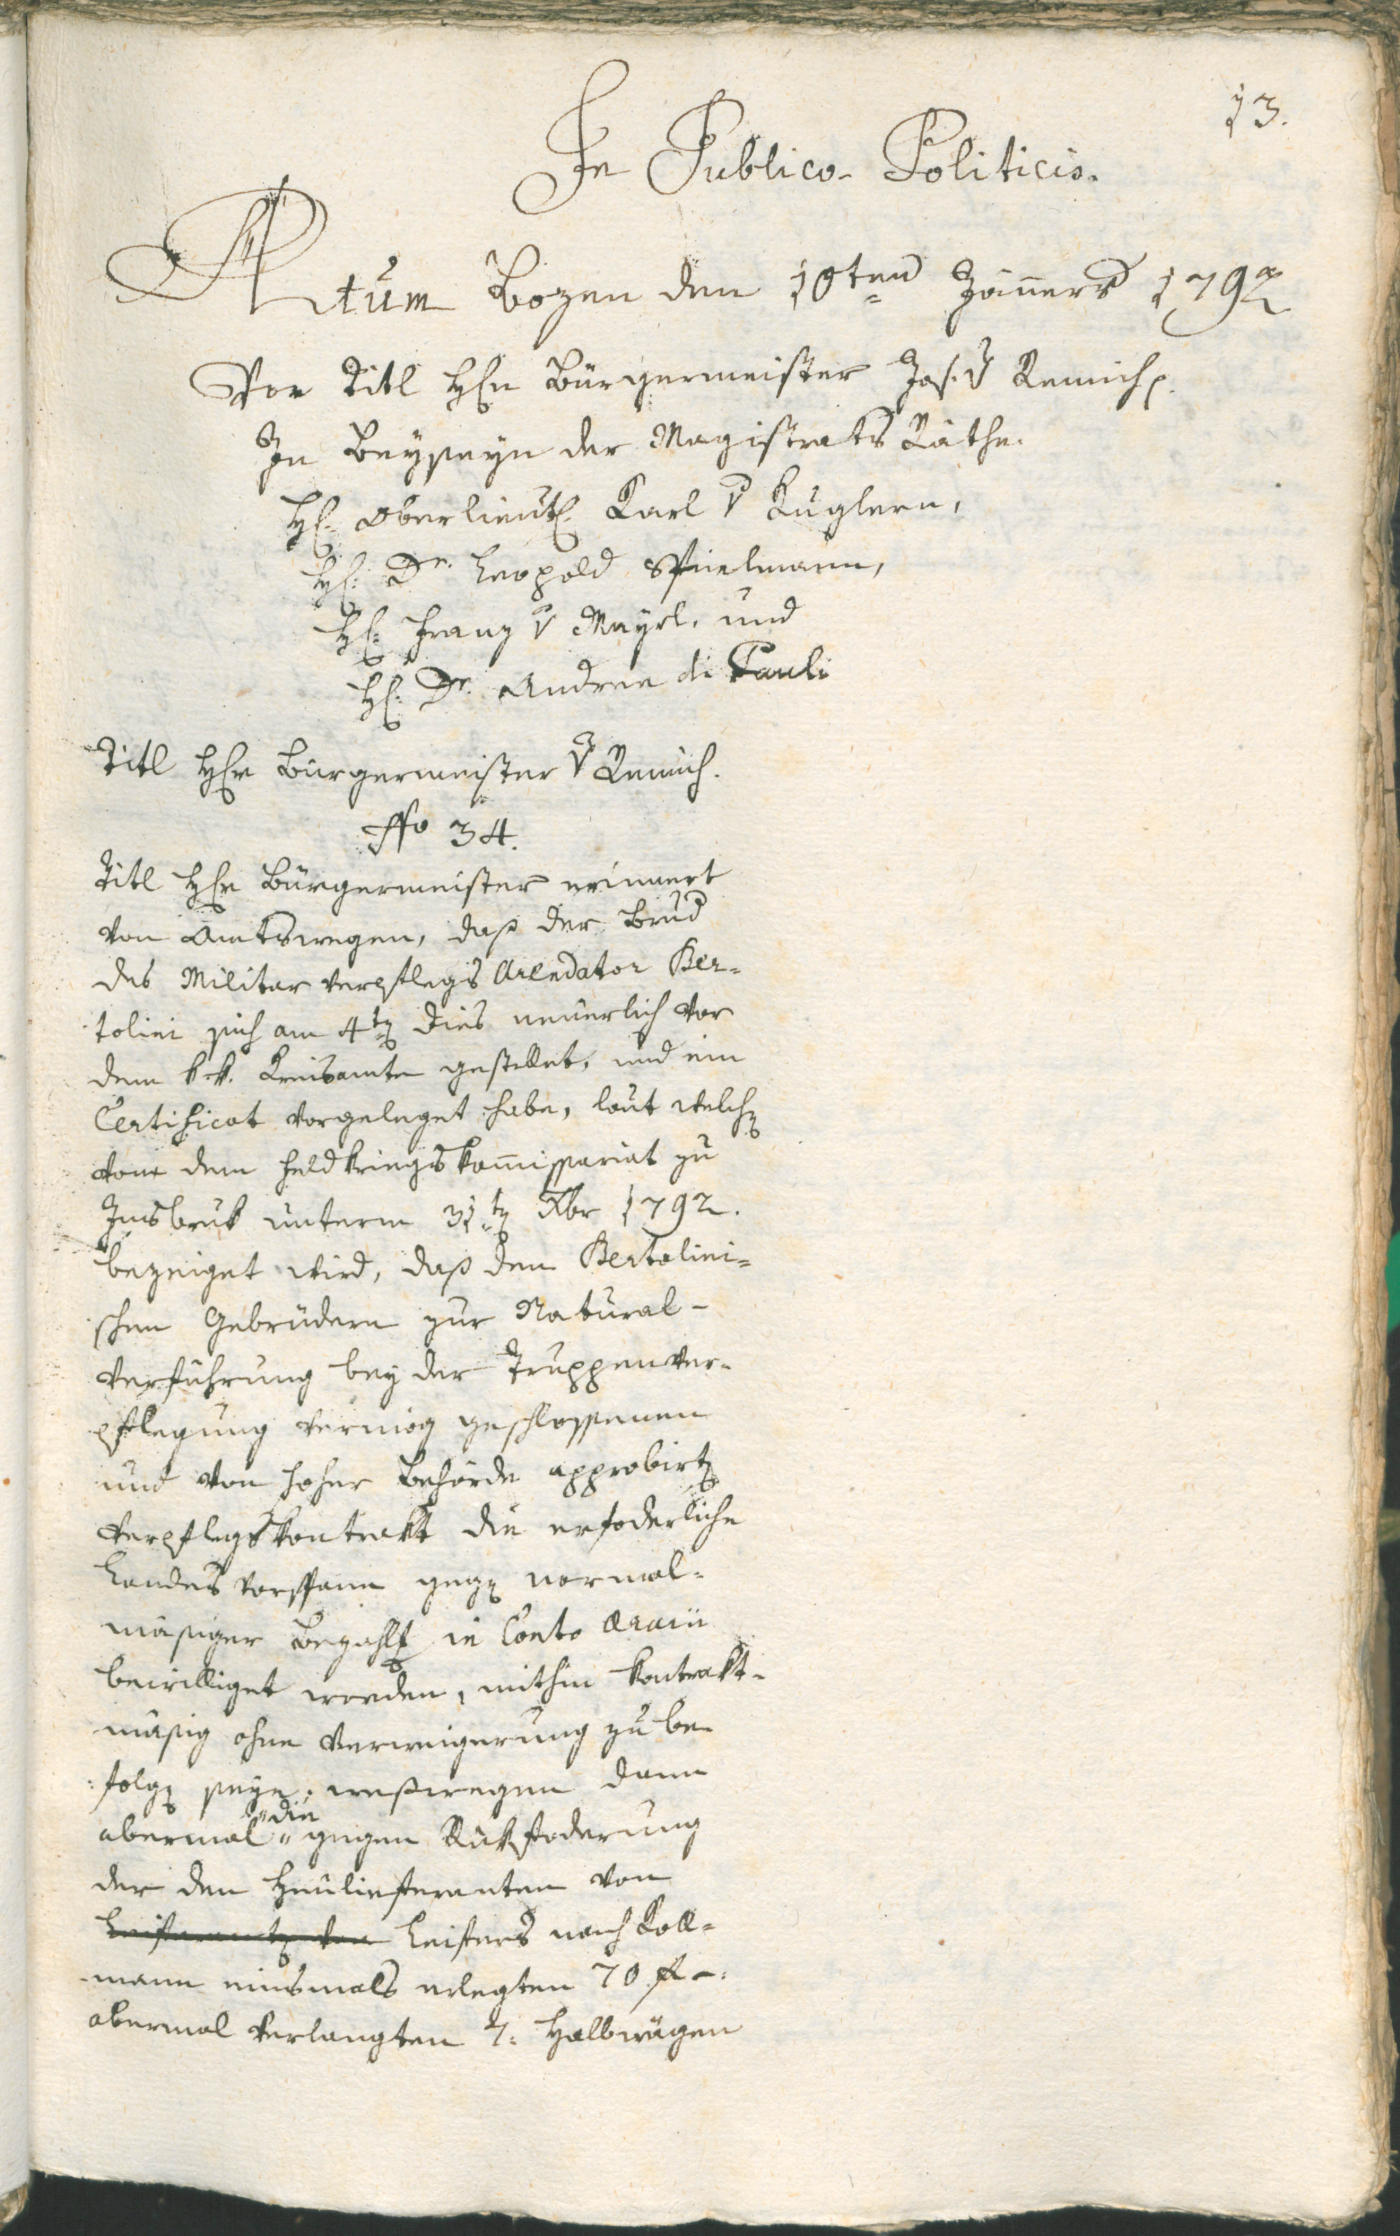 13.
In Publico-Politicis.
Actum Bozen den 10ten Jäners 1792
Vor Titl Hℓn Bürgermeister Jos. v Remich p.
In Beyseyn der Magistrats Räthe.
Hℓ: Oberlieutℓ: Karl v Kuglern,
Hℓ: Dr. Leopold Spielmann,
Hℓ: Franz v Mayrl, und
Hℓ: Dr. Andree di Pauli
Titl Hℓr Bürgermeister v Remich.
34.
Titl Hℓr Bürgermeister erinnert
von Amtswegen, daß der Brud
des Militar verpflegs Arendator Ber-
tolini sich am 4t dies neuerlich vor
dem k.k. Kreisamte gestellet, und ein
Certificat vorgeleget habe, laut welch
von dem Feldkriegskommissariat zu
Insbruk unterm 31t Xbr 1792.
bezeiget wird, daß den Bertolini-
schen Gebrüdern zur Natural-
verführung bey der Truppenver-
pflegung vermög geschlossenen
und von hoher Behörde approbirt
verpflegskontrakt die erfoderliche
Landes vorspann geg normal-
mäsiger Bezahl in Conto Ararii
bewilliget worden, mithin kontrakt-
mäsig ohne Verweigerung zu be-
folg seye, weßwegen dann
abermal die gegen Rükfoderung
der den Heulieferanten von
Leifers nach Koll-
mann einsmals erlegten 70 f -:
abermal verlangten 7: Halbwägen